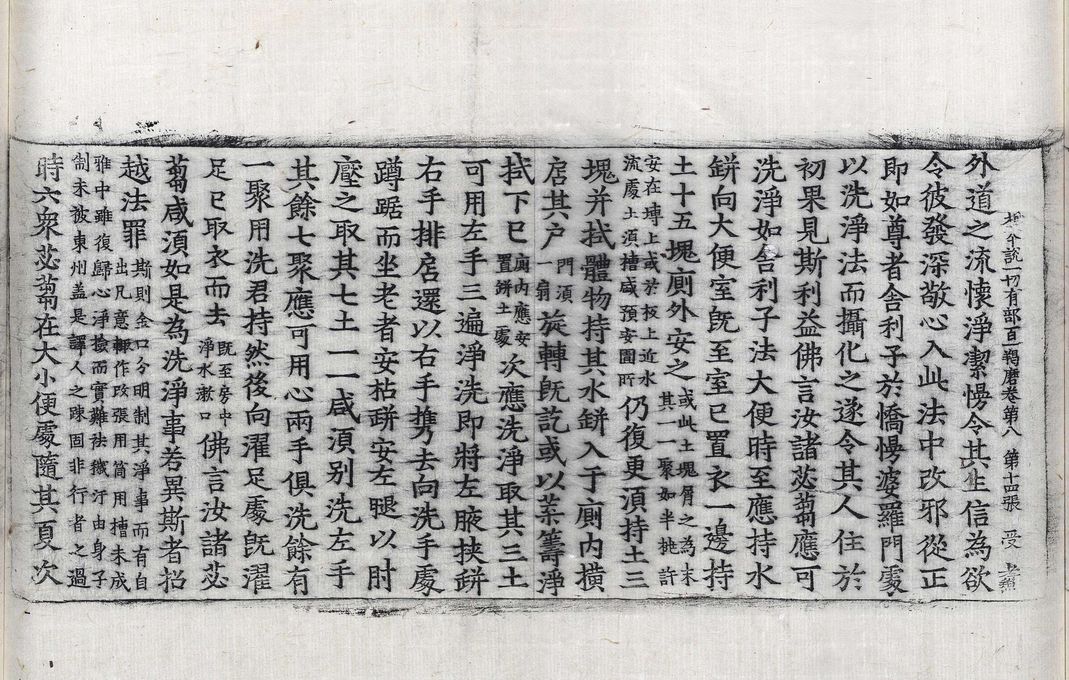 根本說一切有部百一羯磨卷第八 第十四張 受
外道之流懷淨潔慢令其生信為欲
令彼發深敬心入此法中改邪從正
即如尊者舍利子於憍慢婆羅門處
以洗淨法而攝化之遂令其人住於
初果見斯利益佛言汝諸苾蒭應可
洗淨如舍利子法大便時至應持水
缾向大便室旣至室已置衣一邊持
土十五塊廁外安之或此土塊屑之為末其一一聚如半桃許
安在塼上或若板上近水流處土須槽盛預安圊所仍復更須持土三
塊并拭體物持其水缾入于廁內橫
居其戶門須一扇旋轉旣訖或以葉籌淨
拭下已廁內應安置缾土處次應洗淨取其三土
可用左手三遍淨洗即將左腋挾缾
右手排扂還以右手攜去向洗手處
蹲踞而坐老者安枯缾安左腿以肘
壓之取其七土一一咸須別洗左手
其餘七聚應可用心兩手俱洗餘有
一聚用洗君持然後向濯足處旣濯
足已取衣而去旣至房中淨水漱口佛言汝諸苾
蒭咸須如是為洗淨事若異斯者招
越法罪斯則金口分明制其淨事而有自出凡意輒作改張用筒用槽未成
雅中雖復歸心淨撿而實難祛穢汙由身子制未被東州蓋是譯人之疎固非行者之過
時六眾苾蒭在大小便處隨其夏次